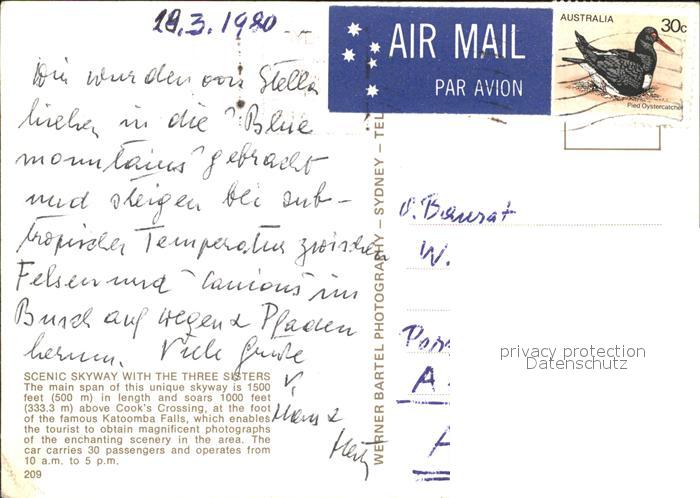 18.3.1980
AIR MAIL
PAR AVION
AUSTRALIA
30c
Pied Oystercatcher
Wir wurden von Stella
lieben in die "Blue
mountains" gebracht
und steigen bei sub-
tropischer Temperatur zwischen
Felsen und "Canions" im
Busch auf Wegen & Pfaden
herum. Viele Grüße
v.
Hans &
SCENIC SKYWAY WITH THE THREE SISTERS
The main span of this unique skyway is 1500
feet (500 m) in length and soars 1000 feet
(333.3 m) above Cook's Crossing, at the foot
of the famous Katoomba Falls, which enables
the tourist to obtain magnificent photographs
of the enchanting scenery in the area. The
car carries 30 passengers and operates from
10 a.m. to 5 p.m.
209
WERNER BARTEL PHOTOGRAPHY – SYDNEY – TEL
Baurat
W.
A
privacy protection
Datenschutz